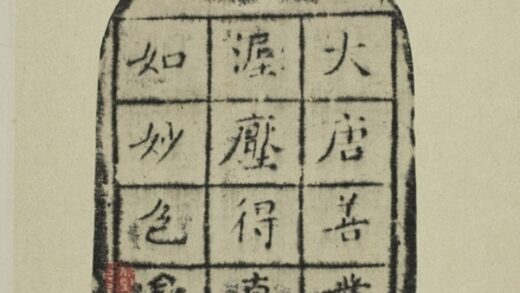 大唐善業
埿壓得真
如妙色